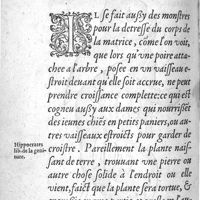 IL se fait aussy des monstres
pour la detresse du corps de
la matrice, come l'on voit,
que lors qu'vne poire attachee
a l'arbre, posee en vn vaisseau estroit
deuant qu'elle soit accrue, ne peut
prendre croissance complette: ce qui est
cogneu aussy aux dames qui nourrissent
des ieunes chiēs en petits paniers, ou autres
vaisseaux estroicts pour garder de
croistre. Pareillement la plante naissant
de terre, trouuant vne pierre ou
autre chose solide à l'endroit ou elle
vient, faict que la plante sera tortue, &
Hippocrates
lib. de la geniture.